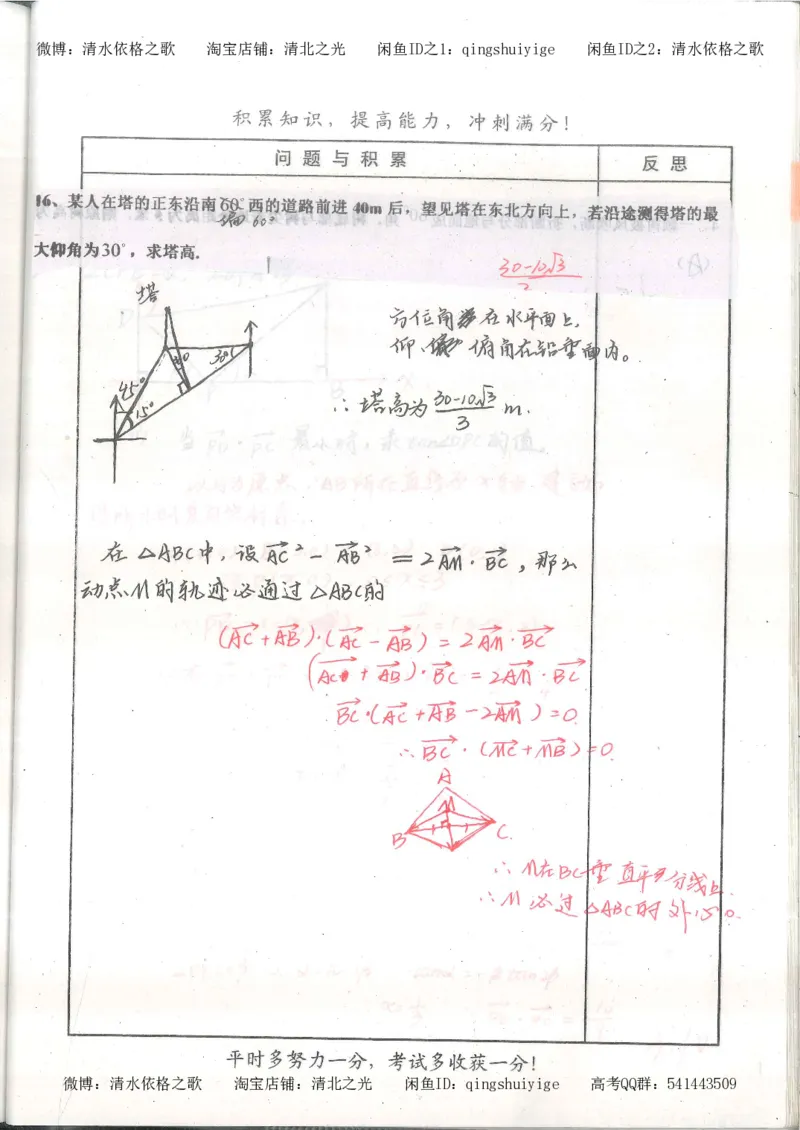 微博：清水依格之歌 淘宝店铺：清北之光 闲鱼ID之1：qingshuiyige 闲鱼ID之2：清水依格之歌
积累知识，提高能力，冲刺满分！
问题与积累 反思
16、某人在塔的正东沿南60°西的道路前进 40m 后，望见塔在东北方向上，若沿途测得塔的最
偏60°
大仰角为30°，求塔高.
30-10√3
2
塔
方位角 在水平面上，
仰、俯角在铅垂面内。
30° 30°
45°
15°
∴塔高为 (30-10√3)/3 m.
在△ABC中，设AC²-AB²=2AM·BC，那么
动点M的轨迹必通过△ABC的
(AC+AB)·(AC-AB)=2AM·BC
(AC+AB)·BC=2AM·BC
BC·(AC+AB-2AM)=0
∴BC·(MC+MB)=0.
A
M
B C.
∴M在BC垂直平分线上.
∴M必过△ABC的外心O.
平时多努力一分，考试多收获一分！
微博：清水依格之歌 淘宝店铺：清北之光 闲鱼ID：qingshuiyige 高考QQ群：541443509